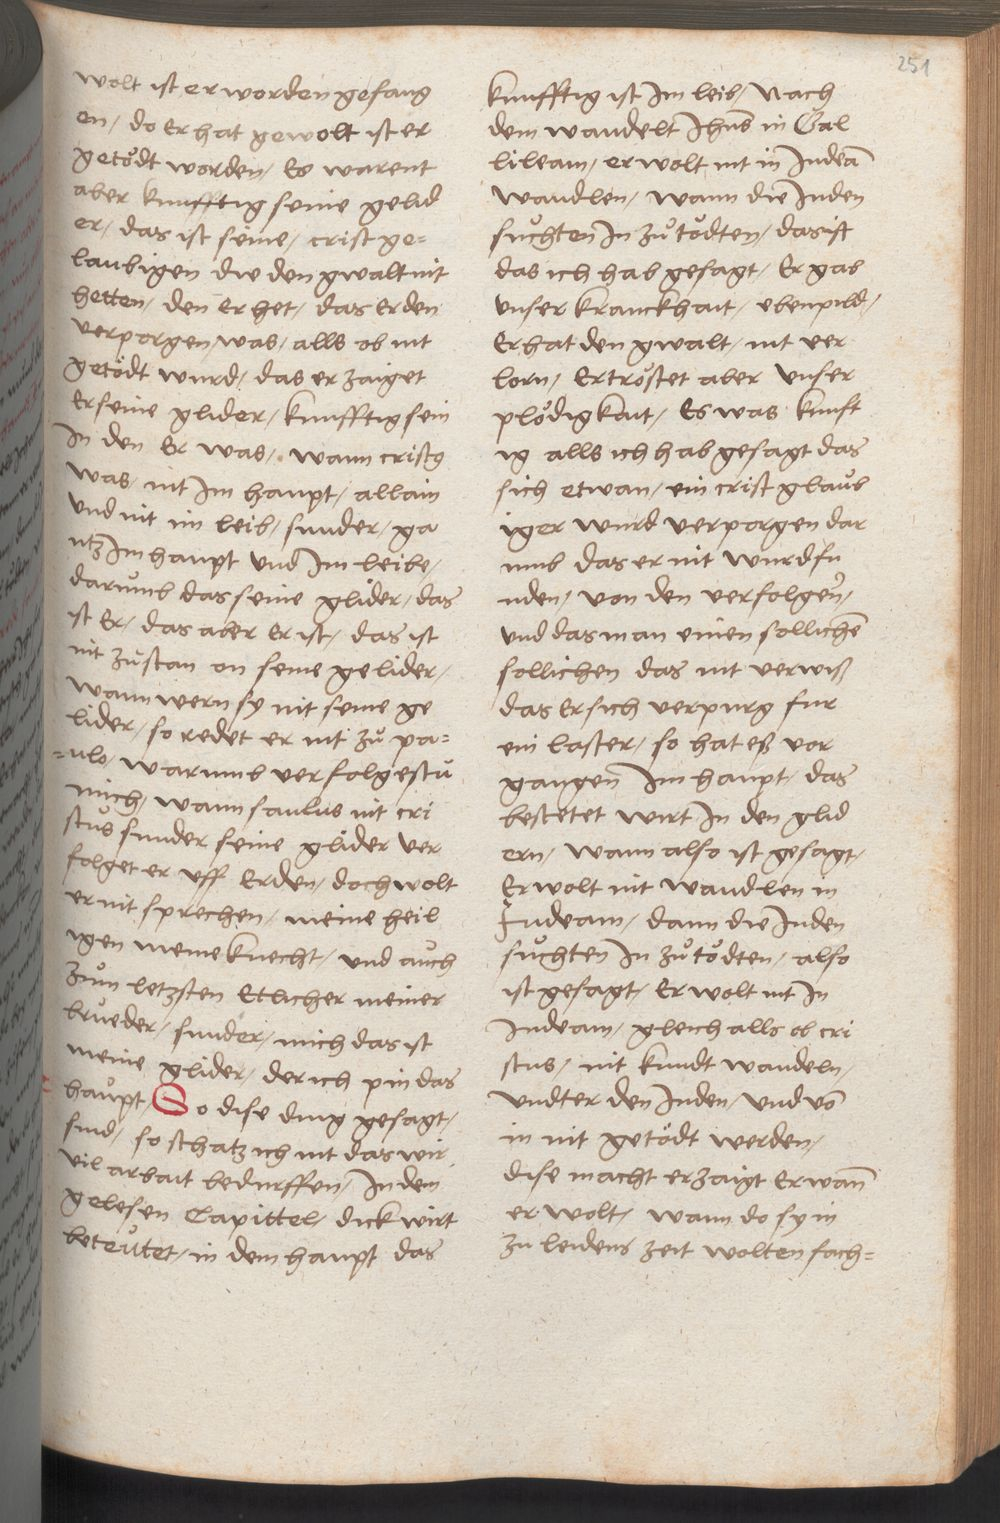 251
wolt ist er worden gefang
en / do Er hat gewolt ist er
getödt worden / Es warent
aber kunfftig seine gelid
er / das ist seine / crist ge=
laubigen die den gwalt nit
hetten / den er het / das Er den
verporgen was / alls ob nit
getödt wurd / das er zaiget
Er seine glider / kunfftig sein
In den Er was / wann cristꝯ
was nit Im haupt / allain
Vnd nit im leib / sunder / ga
ntz Im haupt Vnd Im leibe /
darumb das seine glider / das
ist Er / das aber Er ist / das ist
nit zů stan on seine gelider /
Wann wern sy nit seine ge
lider / so redet er nit zů pa=
=ulo / warumb verfolgestů
mich / wann saulus nit cri
stus sunder seine glider ver
folget er vff Erden / doch wolt
er nit sprechen / meine heil
igen meine knecht / vnd auch
Zum letzsten Etlicher meiner
brueder / sunder / mich das ist
meine glider / der ich pin das
haupt / So dise ding gesagt /
sind / so schatz ich nit das wir
vil arbait bedurffen / In dem
gelesen Capittel / dick wirt
beteutet / in dem haupt das
kunfftig ist Im leib / Nach
dem wandelt Ihus in Gal
lileam / er wolt nit in Judeā
wandlen / wann die Juden
suchten In zů tödten / das ist
das ich hab gesagt / Er gab
Vnser kranckhait / ebenpild /
Er hat den gwalt / nit ver
lorn / Er tröstet aber Vnser
plödigkait / Es was kunft
ig alls ich hab gesagt das
sich etwan / ein crist glaub
iger wurd verporgen dar
umb das er nit wurd fu
nden / von den verfolgern /
Vnd das man einen sollichē
sollichen das nit verwiß
das Er sich verpurg fur
ein laster / so hat eß vor
gangen Im haupt / das
bestetet wirt In den glid
ern / wann also ist gesagt /
Er wolt nit wandlen in
Judeam / dann die Juden
suchten In zů tödten / also
ist gesagt / Er wolt nit In
Judeam / gleich alls ob cri
stus / nit kundt wandeln /
Vndter den Juden / vnd vō
in nit getödt werden /
dise macht erzaigt Er wañ
er wolt / wann do sy in
zu leidens zeit wolten fach=